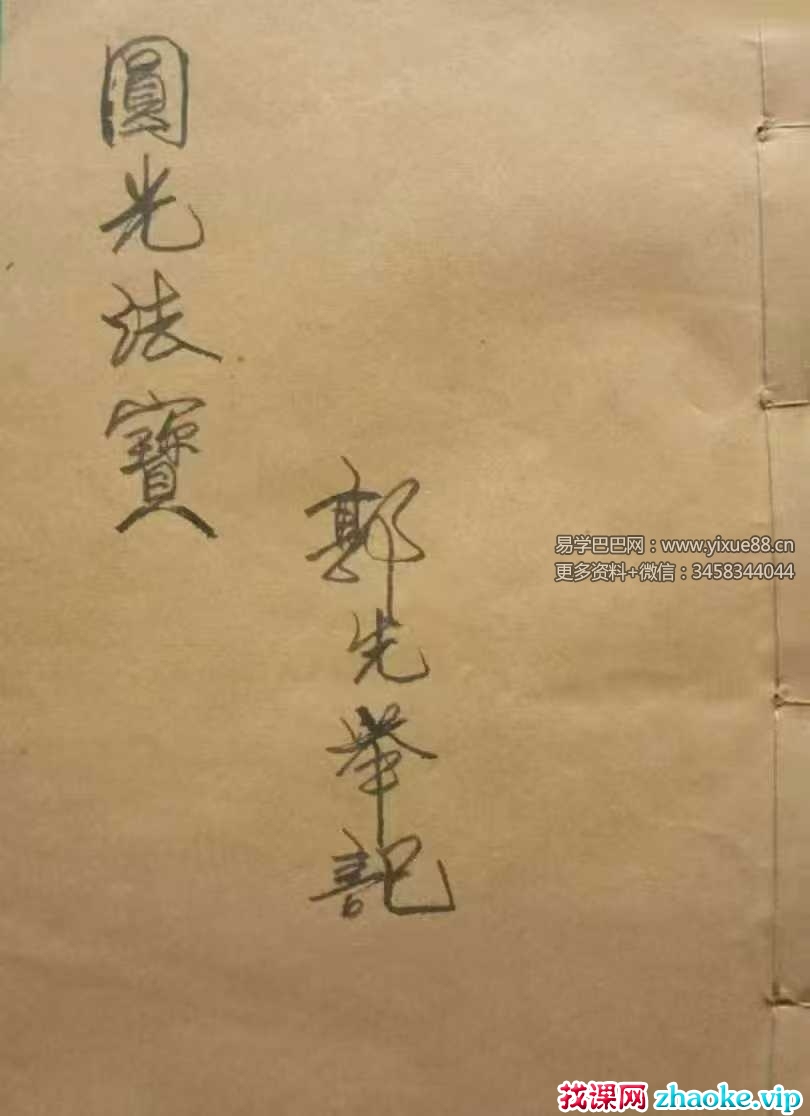 圓光法寶
先举記
易学巴巴网：www.yixue88.cn
更多资料+微信：3458344044
找课网 zhaoke.vip